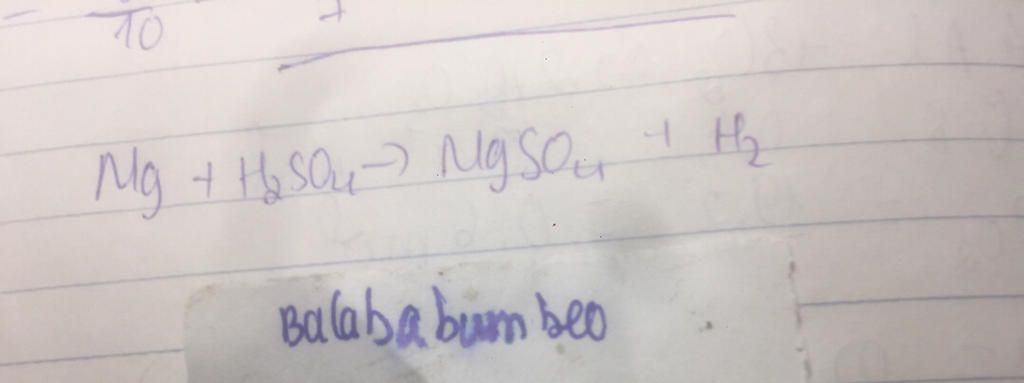 - 10 +
Mg + H₂SO₄ → MgSO₄ + H₂
Balababumbeo